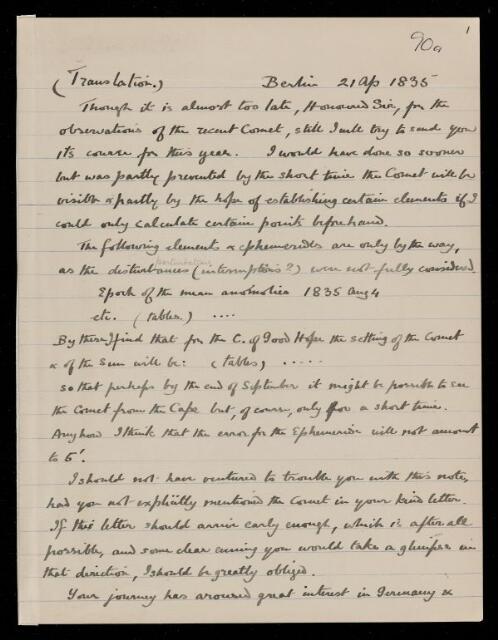 90a
1
(Translation.) Berlin 21 Ap 1835
Though it is almost too late, Honoured Sir, for the
observations of the recent Comet, still I will try to send you
its course for this year. I would have done so sooner
but was partly prevented by the short time the Comet will be
visible & partly by the hope of establishing certain elements if I
could only calculate certain points beforehand.
The following elements & ephemerides are only by the way,
perturbations
as the disturbances (interruptions?) were not fully considered.
Epoch of the mean 1835 Aug 4
etc. (tables.) ....
By these I find that for the C. of Good Hope the setting of the Comet
& of the Sun will be: (tables) .....
so that perhaps by the end of September it might be possible to see
the Comet from the Cape but, of course, only for a short time.
Anyhow I think that the error for the Ephemeride will not amount
to 5'.
I should not have ventured to trouble you with this note,
had you not explicitly mentioned the Comet in your kind letter.
If this letter should arrive early enough, which is after all
possible, and some clear evening you would take a glimpse in
that direction, I should be greatly obliged.
Your journey has aroused great interest in Germany &